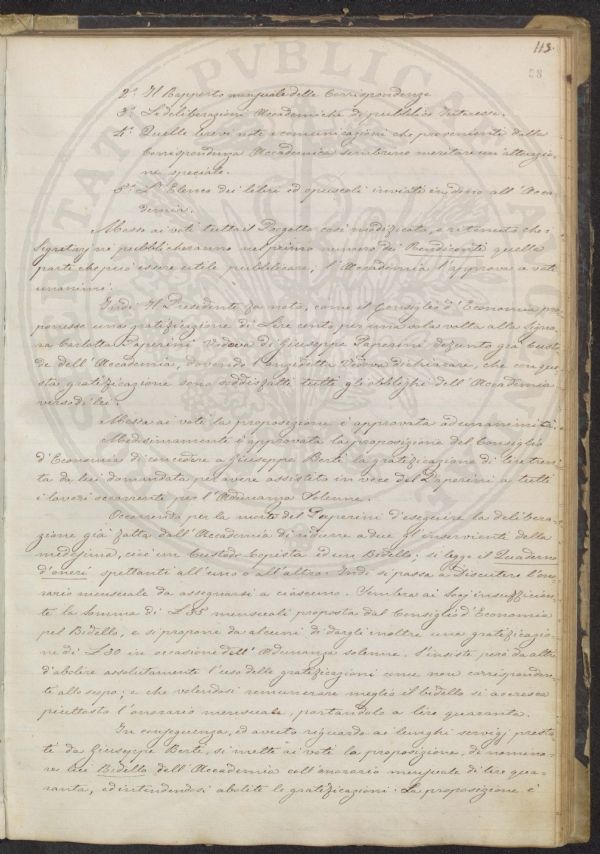 113.
58
2° Il Rapporto mensuale delle Corrispondenze
3° Le deliberazioni Accademiche di pubblico interesse.
4° Quelle brevi note e comunicazioni che provenienti dalla
Corrispondenza Accademica sembrino meritare un'attenzio-
ne speciale.
5° L'Elenco dei libri ed opuscoli inviati in dono all'Acca-
demia.
Messo ai voti tutto il Progetto così modificato, e ritenuto che i
Segretarj ne pubblicheranno nel primo numero dei Rendiconti quella
parte che può essere utile pubblicare, l'Accademia l'approva a voti
unanimi.
Indi Il Presidente fa noto, come il Consiglio d'Economia pro-
ponesse una gratificazione di Lire cento per una sola volta alla Signo-
ra Carlotta Paperini Vedova di Giuseppe Paperini defunto già Custo-
de dell'Accademia, dovendo l'anzidetta Vedova dichiarare, che con que-
sta gratificazione sono soddisfatti tutti gli obblighi dell'Accademia
verso di lei.
Messa ai voti la proposizione è approvata ad unanimità.
Medesimamente è approvata la proposizione del Consiglio
d'Economia di concedere a Giuseppe Berti la gratificazione di lire tren-
ta da lui domandata per avere assistito in vece del Paperini a tutti
i lavori occorrenti per l'Adunanza Solenne.
Occorrendo per la morte del Paperini d'eseguire la delibera-
zione già fatta dall'Accademia di ridurre a due gl'inservienti della
medesima, cioè un Custode Copista ed un Bidello, si legge il Quaderno
d'oneri spettanti all'uno e all'altro. Indi si passa a discutere l'ono-
rario mensuale da assegnarsi a ciascuno. Sembra ai Socj insufficien-
te la somma di L. 35 mensuali proposta dal Consiglio d'Economia
pel Bidello, e si propone da alcuni di dargli inoltre una gratificazio-
ne di L. 30 in occasione dell'Adunanza solenne. S'insiste però da altri
d'abolire assolutamente l'uso delle gratificazioni come non corrisponden-
te allo scopo; e che volendosi remunerare meglio il bidello si accresca
piuttosto l'onorario mensuale, portandolo a lire quaranta.
In conseguenza, ed avuto riguardo ai lunghi servigj presta-
ti da Giuseppe Berti, si mette ai voti la proposizione, di nomina-
re lui Bidello dell'Accademia coll'onorario mensuale di lire qua-
ranta, ed intendendosi abolite le gratificazioni. La proposizione è